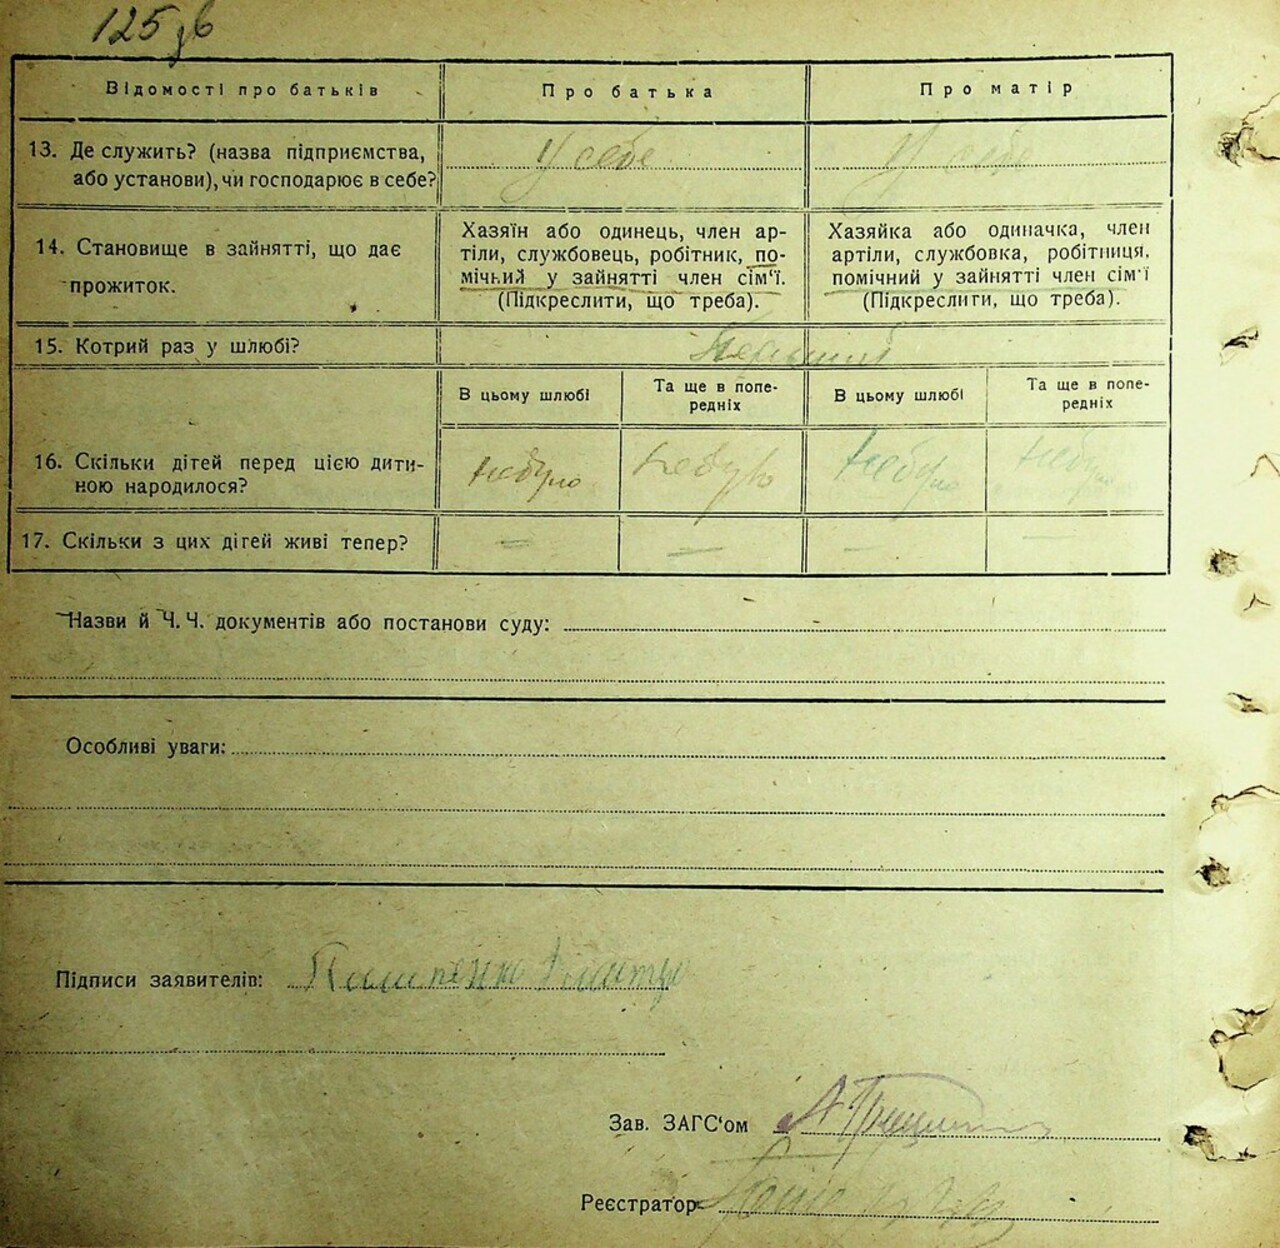 125 зв
Відомості про батьків
Про батька
Про матір
13. Де служить? (назва підприємства,
або установи), чи господарює в себе?
У себе
У себе
14. Становище в зайнятті, що дає
прожиток.
Хазяїн або одинець, член ар-
тіли, службовець, робітник, по-
мічний у зайнятті член сім'ї.
(Підкреслити, що треба).
Хазяйка або одиначка, член
артіли, службовка, робітниця,
помічний у зайнятті член сім'ї
(Підкреслити, що треба).
15. Котрий раз у шлюбі?
В цьому шлюбі
Та ще в попе-
редніх
В цьому шлюбі
Та ще в попе-
редніх
16. Скільки дітей перед цією дити-
ною народилося?
небуло
небуло
небуло
небуло
17. Скільки з цих дітей живі тепер?
— — — —
Назви й Ч. Ч. документів або постанови суду:
Особливі уваги:
Підписи заявителів:
Зав. ЗАГС'ом
Реєстратор